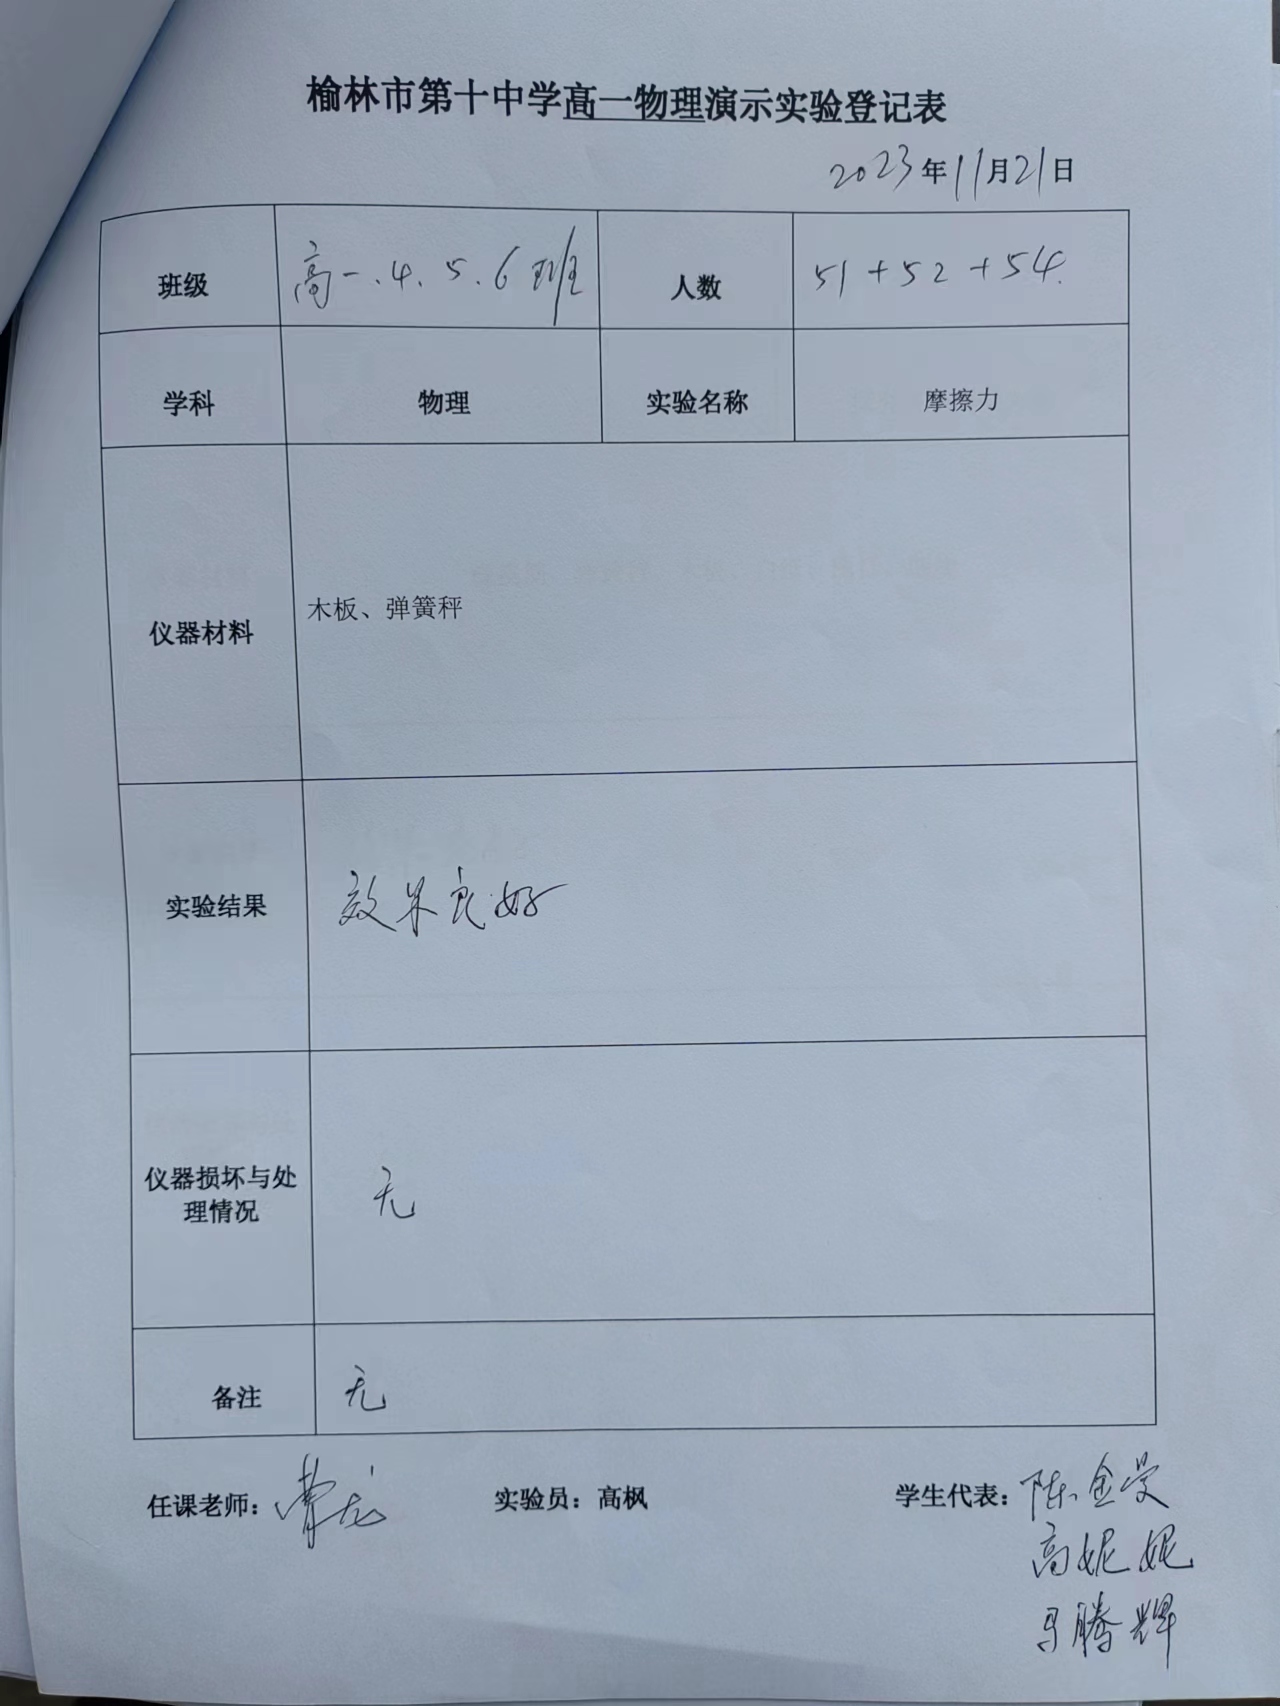 榆林市第十中学高一物理演示实验登记表
2023年11月21日
班级 高一.4.5.6班 人数 51+52+54.
学科 物理 实验名称 摩擦力
仪器材料 木板、弹簧秤
实验结果 效果良好
仪器损坏与处
理情况 无
备注 无
任课老师： 实验员：高枫 学生代表：陈金
高妮妮
马腾辉